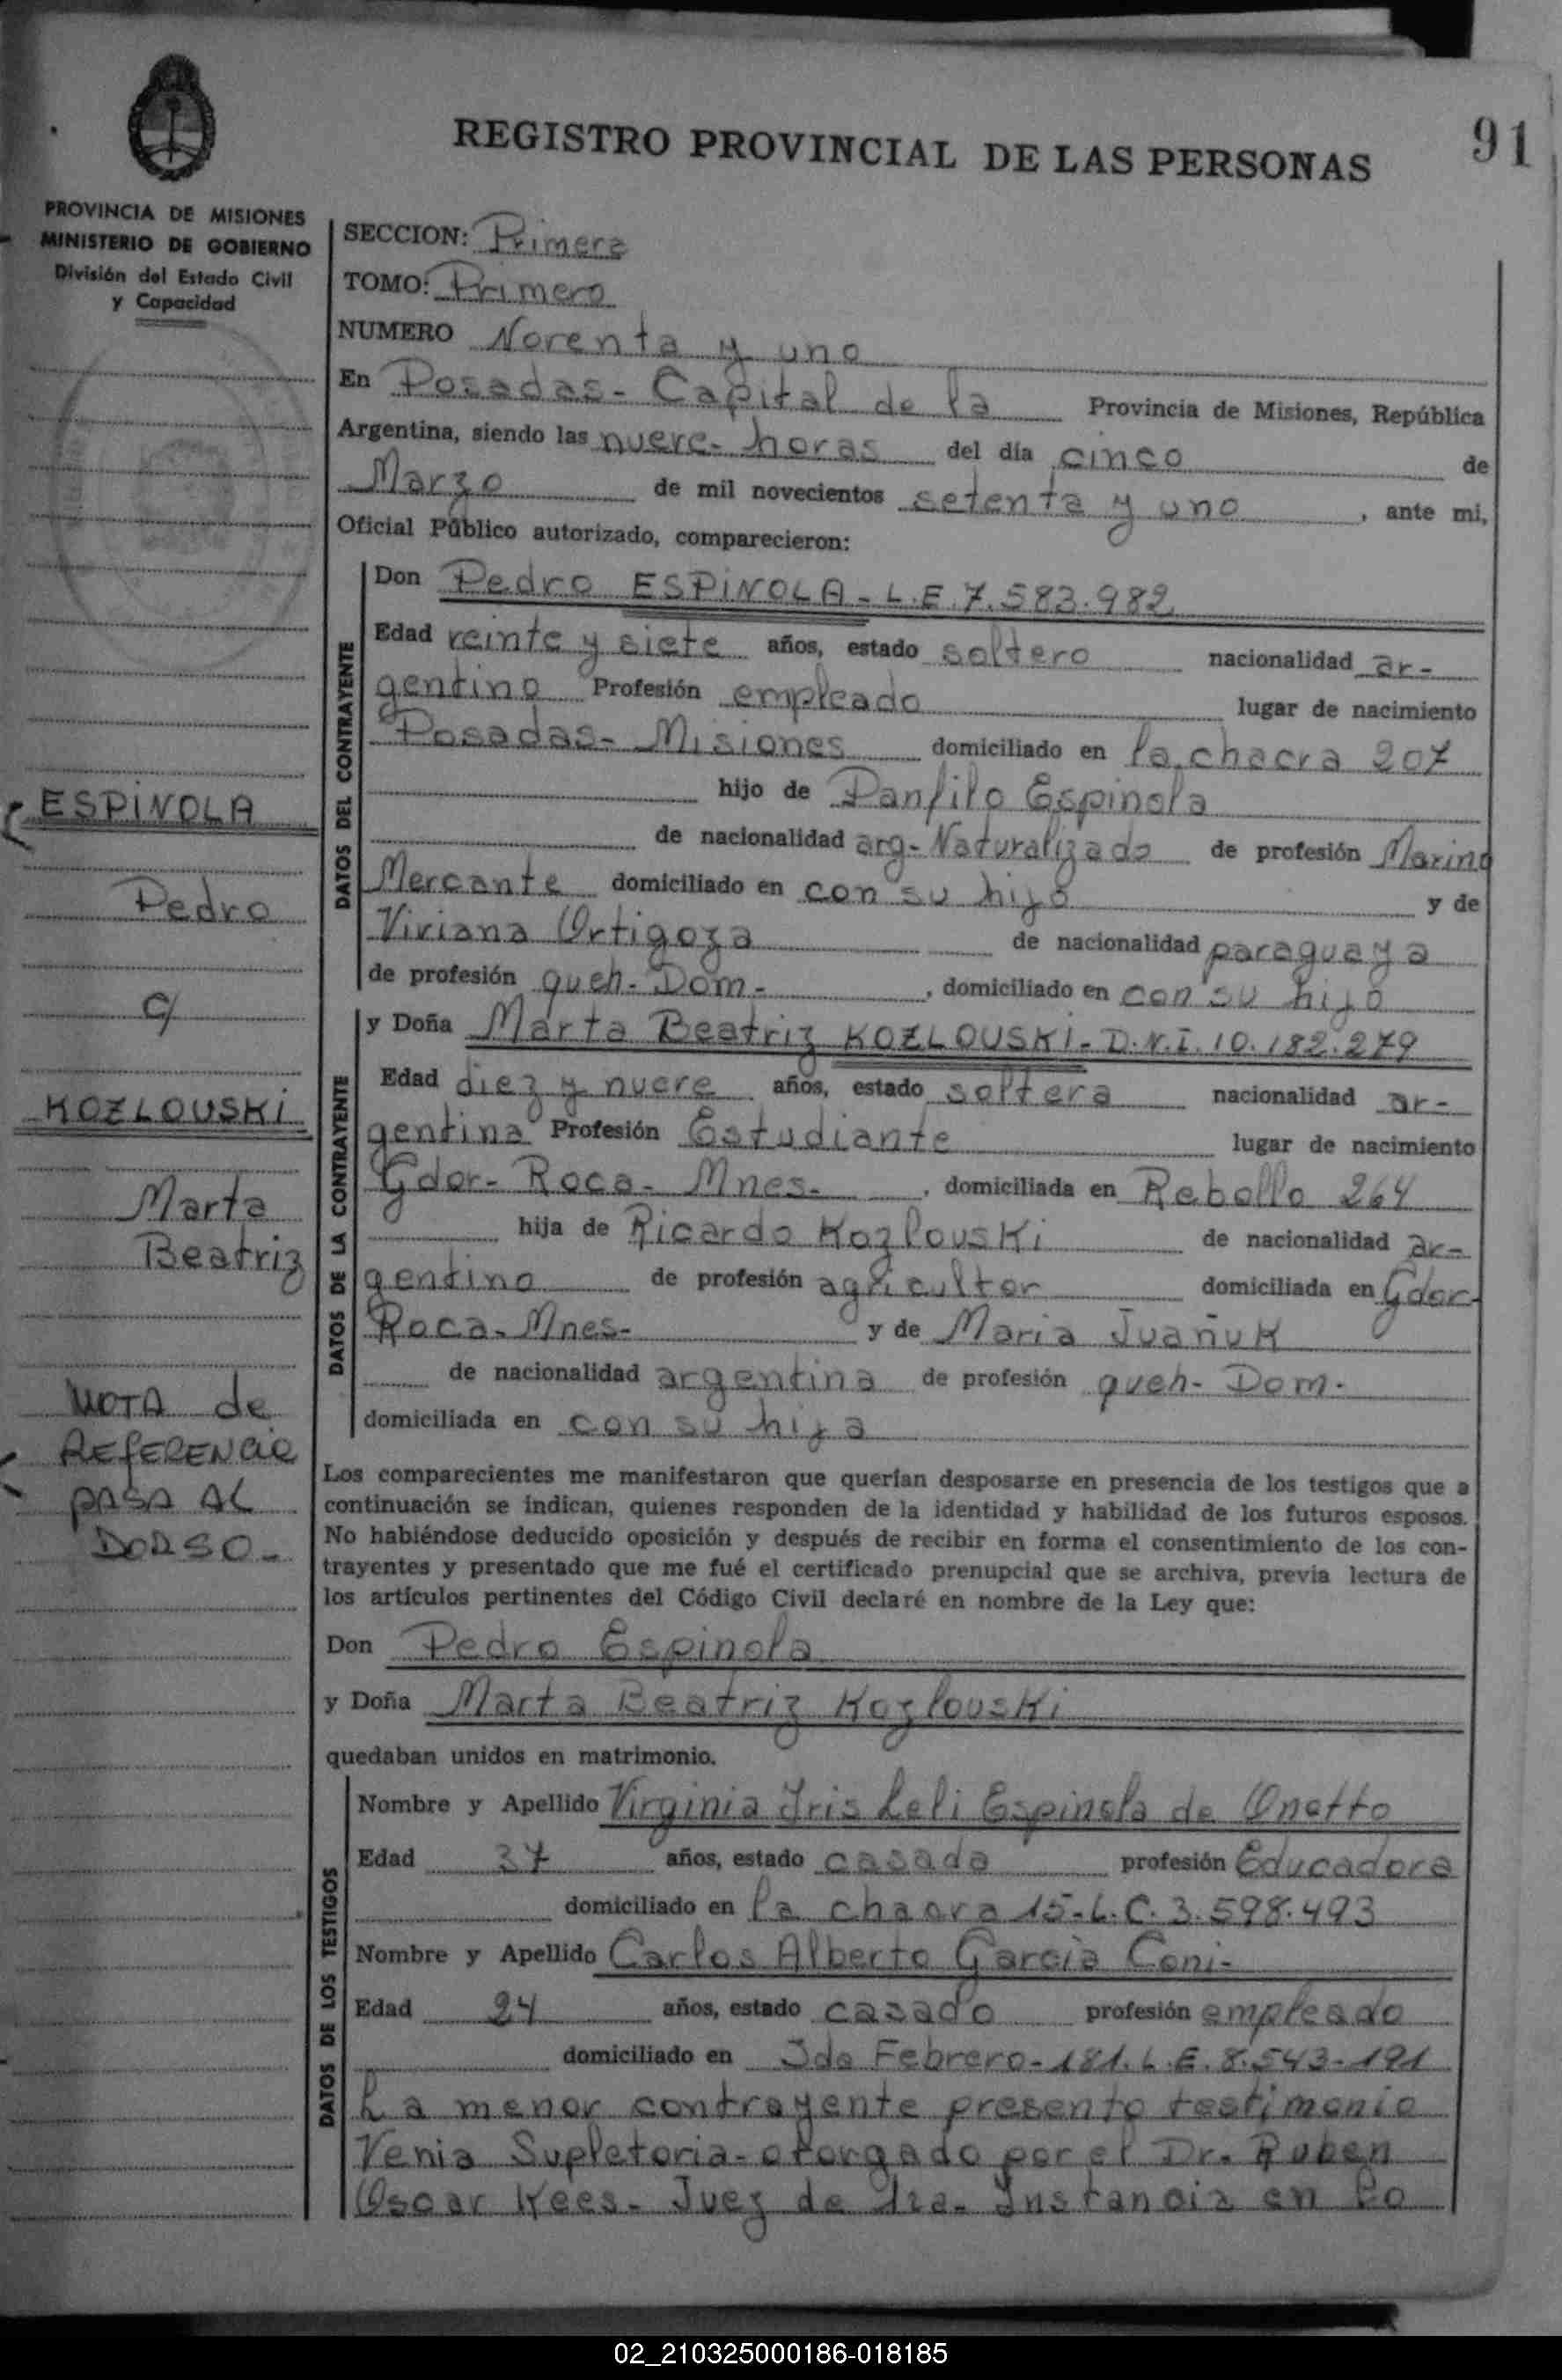 REGISTRO PROVINCIAL DE LAS PERSONAS
91
PROVINCIA DE MISIONES
MINISTERIO DE GOBIERNO
División del Estado Civil
y Capacidad
SECCION: Primera
TOMO: Primero
NUMERO Noventa y uno
En Posadas - Capital de la Provincia de Misiones, República
Argentina, siendo las nueve - horas del día cinco de
Marzo de mil novecientos setenta y uno, ante mi,
Oficial Público autorizado, comparecieron:
DATOS DEL CONTRAYENTE
Don Pedro ESPINOLA - L.E. 7.583.982
Edad veinte y siete años, estado soltero nacionalidad ar-
gentino Profesión empleado lugar de nacimiento
Posadas - Misiones domiciliado en la chacra 207
hijo de Panfilo Espinola
de nacionalidad arg - Naturalizado de profesión Marino
Mercante domiciliado en con su hijo y de
Viviana Ortigoza de nacionalidad paraguaya
de profesión queh - Dom -, domiciliado en con su hijo
DATOS DE LA CONTRAYENTE
y Doña Marta Beatriz KOZLOUSKI - D.N.I. 10.182.279
Edad diez y nueve años, estado soltera nacionalidad ar-
gentina Profesión Estudiante lugar de nacimiento
Gdor - Roca - Mnes -, domiciliada en Rebollo 264
hija de Ricardo Kozlouski de nacionalidad ar-
gentino de profesión agricultor domiciliada en Gdor -
Roca - Mnes - y de Maria Juañuk
de nacionalidad argentina de profesión queh - Dom -
domiciliada en con su hija
Los comparecientes me manifestaron que querían desposarse en presencia de los testigos que a
continuación se indican, quienes responden de la identidad y habilidad de los futuros esposos.
No habiéndose deducido oposición y después de recibir en forma el consentimiento de los con-
trayentes y presentado que me fué el certificado prenupcial que se archiva, previa lectura de
los artículos pertinentes del Código Civil declaré en nombre de la Ley que:
Don Pedro Espinola
y Doña Marta Beatriz Kozlouski
quedaban unidos en matrimonio.
DATOS DE LOS TESTIGOS
Nombre y Apellido Virginia Iris Leli Espinola de Onetto
Edad 37 años, estado casada profesión Educadora
domiciliado en la chacra 15 - L.C. 3.598.493
Nombre y Apellido Carlos Alberto Garcia Coni -
Edad 24 años, estado casado profesión empleado
domiciliado en 3 de Febrero - 181. L.E. 8.543-191
La menor contrayente presento testimonio
Venia Supletoria - otorgado por el Dr. Ruben
Oscar Kees - Juez de 1ra - Instancia en lo
ESPINOLA
Pedro
c/
KOZLOUSKI
Marta
Beatriz
NOTA de
REFERENCIA
PASA AL
DORSO -
02_210325000186-018185